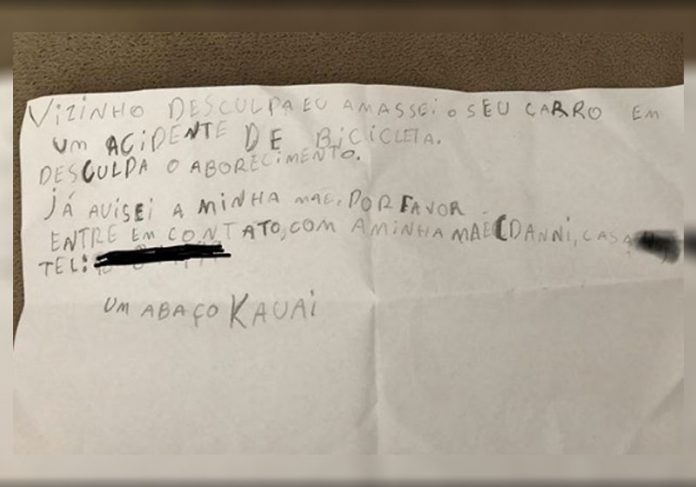 VIZINHO DESCULPA EU AMASSEI O SEU CARRO EM
UM ACIDENTE DE BICICLETA.
DESCULPA O ABORECIMENTO.
JÁ AVISEI A MINHA MÃE, POR FAVOR
ENTRE EM CONTATO, COM A MINHA MÃE (DANNI, CASA
TEL:
UM ABAÇO KAUAI